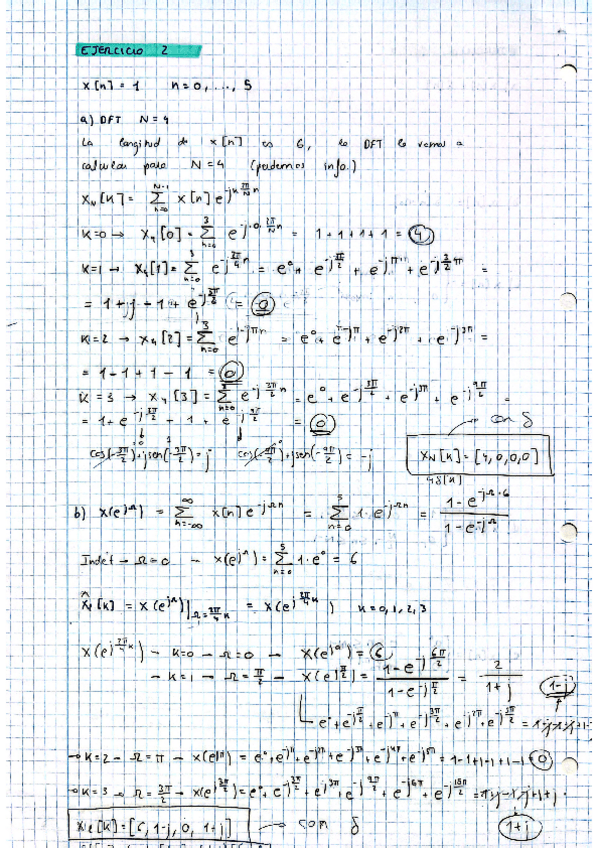 EJERCICIO 2
x[n] = 1 n=0, ..., 5
a) DFT N=4
La longitud de x[n] es 6, la DFT la vamos a
calcular para N=4 (perdemos info.)
X_N[k] = Σ_{n=0}^{N-1} x[n] e^{-jk 2π/N n}
k=0 → X_4[0] = Σ_{n=0}^{3} e^{-j·0·2π/N n} = 1+1+1+1 = 4
k=1 → X_4[1] = Σ_{n=0}^{3} e^{-j 2π/4 n} = e^0 + e^{-jπ/2} + e^{-jπ} + e^{-j 3/2 π} =
= 1 + -j - 1 + e = 0
k=2 → X_4[2] = Σ_{n=0}^{3} e^{-jπn} = e^0 + e^{-jπ} + e^{-j2π} + e^{-j3π} =
= 1 - 1 + 1 - 1 = 0
k=3 → X_4[3] = Σ_{n=0}^{3} e^{-j 3π/2 n} = e^0 + e^{-j 3π/2} + e^{-j3π} + e^{-j 9π/2} =
= 1 + e^{-j 3π/2} - 1 + e^{-j 9π/2} = 0
con δ
cos(-3π/2) + jsen(-3π/2) = j cos(-9π/2) + jsen(-9π/2) = -j
X_N[k] = [4,0,0,0]
4δ[k]
b) X(e^{jΩ}) = Σ_{n=-∞}^{∞} x[n] e^{-jΩn} = Σ_{n=0}^{5} 1·e^{-jΩn} = (1 - e^{-jΩ·6})/(1 - e^{-jΩ})
Indet → Ω=0 - X(e^{jΩ}) = Σ_{n=0}^{5} 1·e^0 = 6
[k] = X(e^{jΩ})|_{Ω=2π/4 k} = X(e^{j 2π/4 k}) k=0,1,2,3
X(e^{j 2π/4 k}) - k=0 - Ω=0 - X(e^{j0}) = 6
- k=1 - Ω=π/2 - X(e^{jπ/2}) = (1 - e^{-j 6π/2})/(1 - e^{-jπ/2}) = 2/(1+j) 1-j
e^0 + e^{-jπ/2} + e^{-jπ} + e^{-j 3π/2} + e^{-j2π} + e^{-j 5π/2} =
→ k=2 - Ω=π - X(e^{jπ}) = e^0 + e^{-jπ} + e^{-j2π} + e^{-j3π} + e^{-j4π} + e^{-j5π} = 1-1+1-1+1-1 0
→ k=3 → Ω=3π/2 → X(e^{j 3π/2}) = e^0 + e^{-j 3π/2} + e^{-j3π} + e^{-j 9π/2} + e^{-j6π} + e^{-j 15π/2} =
[k] = [6, 1-j, 0, 1+j] → con δ 1+j